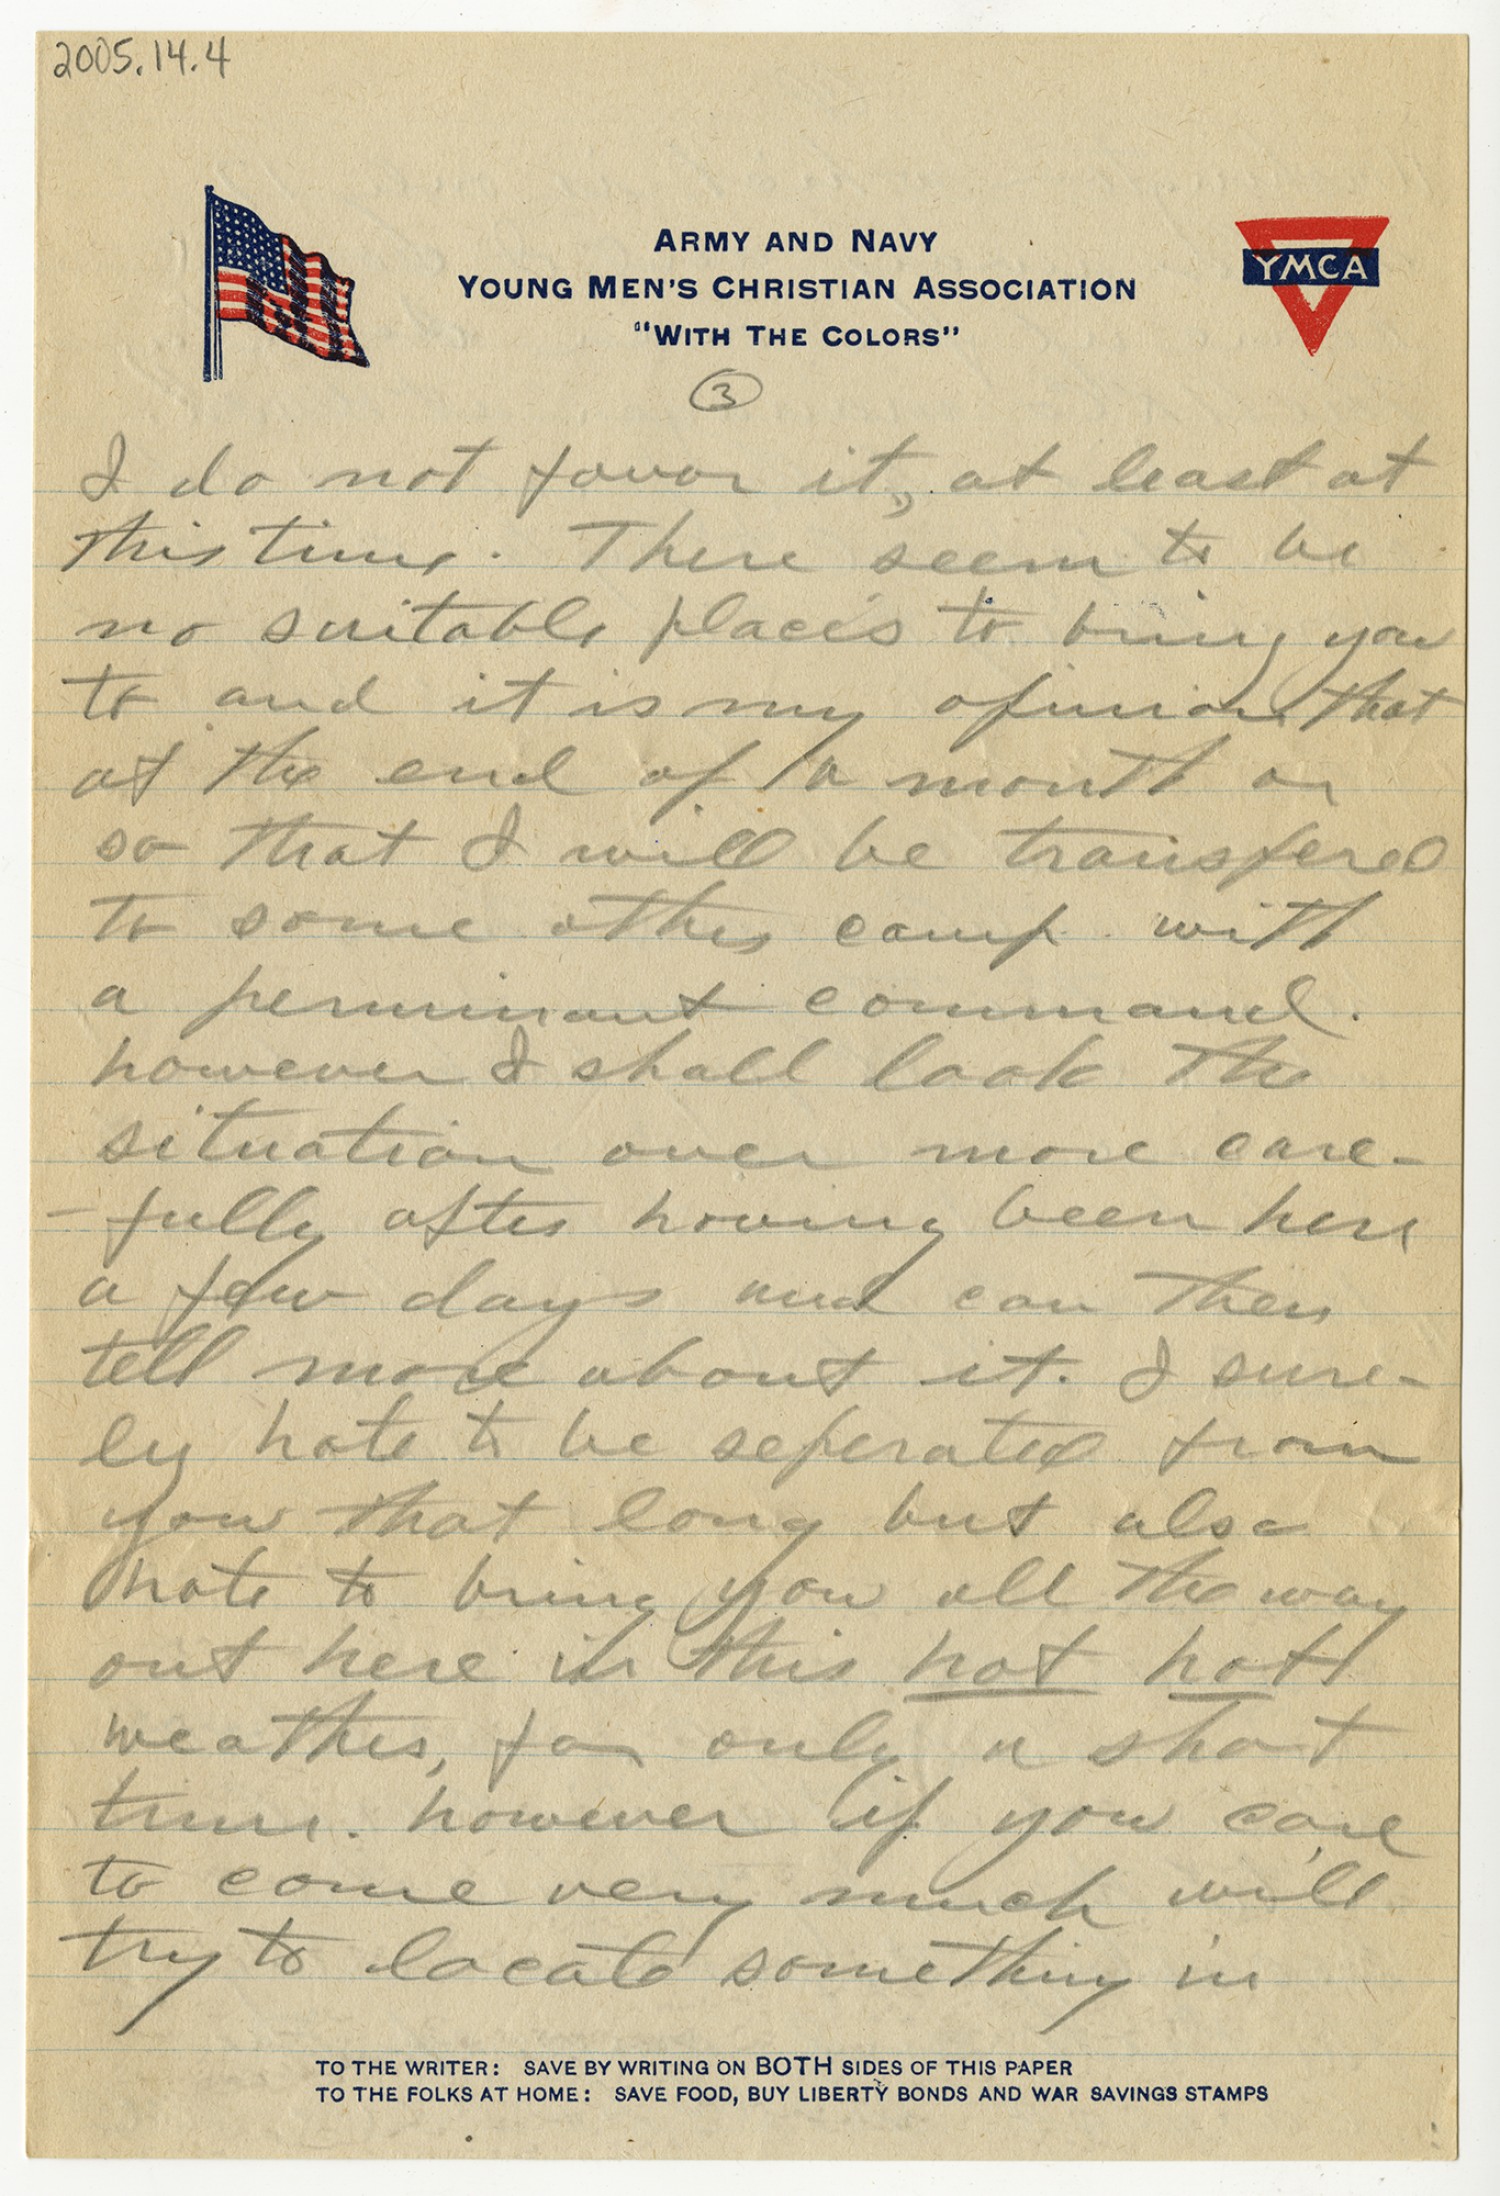 2005.14.4
ARMY AND NAVY
YOUNG MEN'S CHRISTIAN ASSOCIATION
"WITH THE COLORS"
YMCA
3
I do not favor it, at least at
this time. There seem to be
no suitable places to bring you
to and it is my opinion that
at the end of a month or
so that I will be transfered
to some other camp with
a perminant command.
however I shall look the
situation over more care-
-fully after having been here
a few days and can then
tell more about it. I sure-
ly hate to be seperated from
you that long but also
hate to bring you all the way
out here in this hot hot
weather, for only a short
time. however if you care
to come very much will
try to locate something in
TO THE WRITER: SAVE BY WRITING ON BOTH SIDES OF THIS PAPER
TO THE FOLKS AT HOME: SAVE FOOD, BUY LIBERTY BONDS AND WAR SAVINGS STAMPS